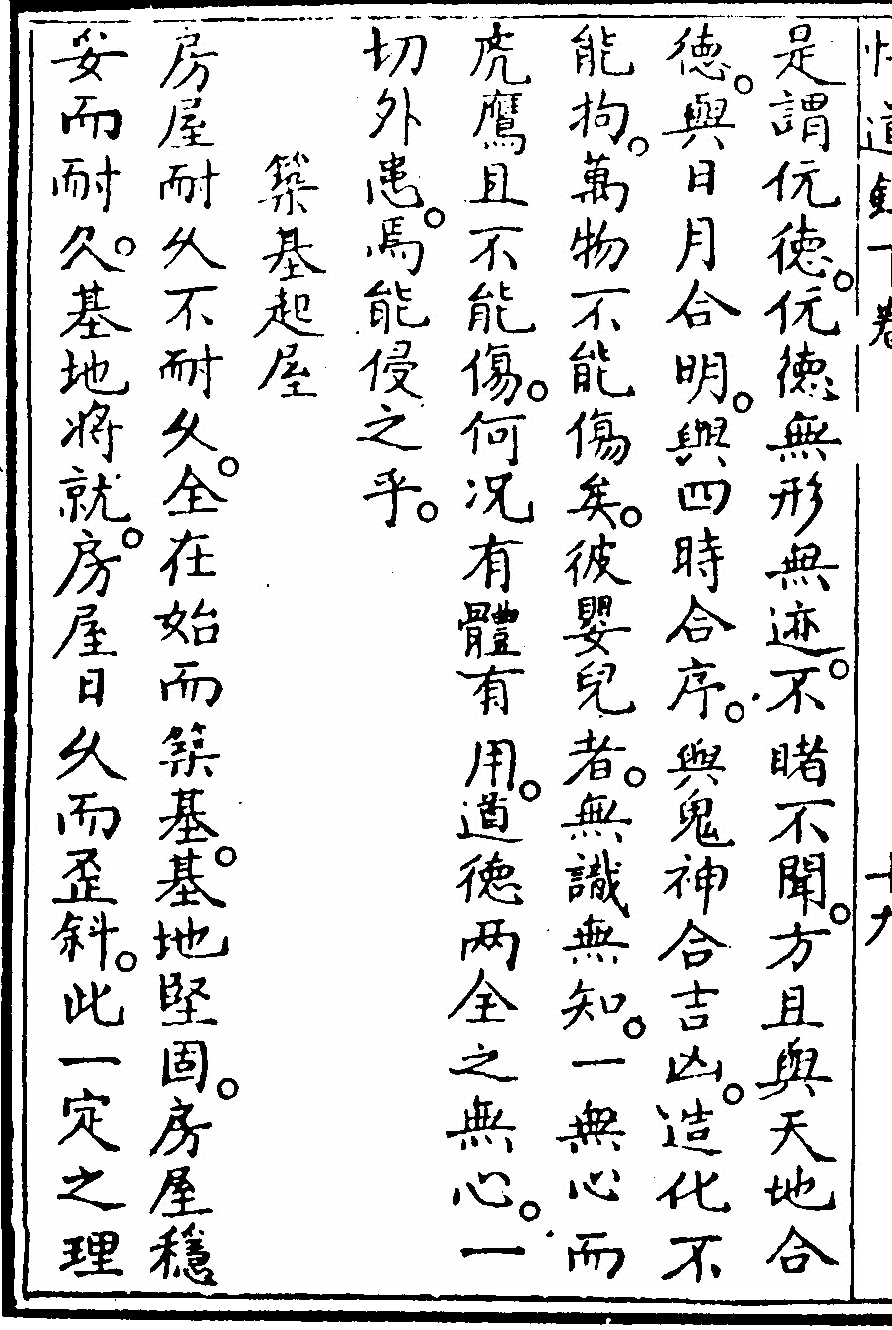 是謂伉德。伉德無形無迹。不睹不聞。方且與天地合
德。與日月合明。與四時合序。與鬼神合吉凶。造化不
能拘。萬物不能傷矣。彼嬰兒者。無識無知。一無心而
虎鷹且不能傷。何况有體有用。道德两全之無心。一
切外患。焉能侵之乎。
築基起屋
房屋耐久不耐久。全在始而築基。基地堅固。房屋穩
妥而耐久。基地將就。房屋日久而歪斜。此一定之理